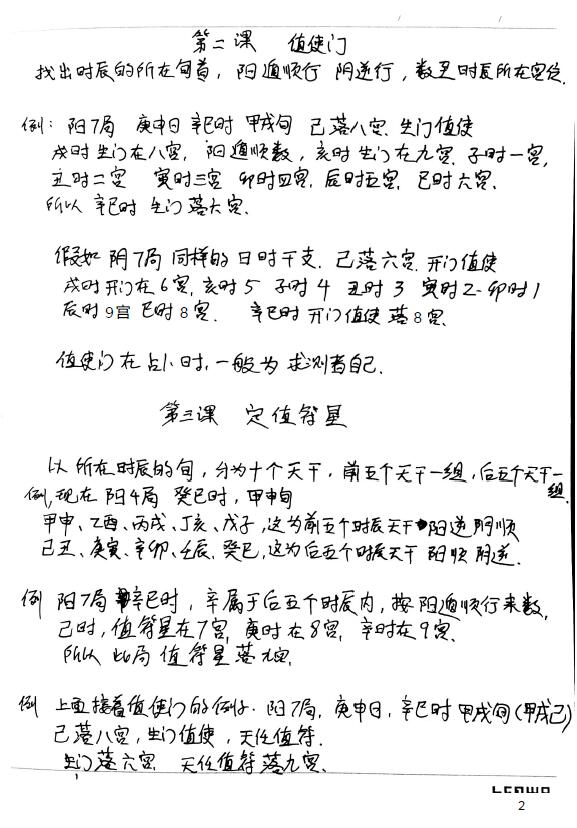 第二课 值使门
找出时辰的所在旬首，阳遁顺行 阴逆行，数至时辰所在宫位.
例：阳7局 庚申日 辛巳时 甲戌旬 己落八宫. 生门值使
戌时生门在八宫, 阳遁顺数，亥时生门在九宫. 子时一宫,
丑时二宫 寅时三宫 卯时四宫. 辰时五宫. 巳时六宫.
所以 辛巳时 生门落六宫.
假如 阴7局 同样的 日时干支. 己落六宫. 开门值使
戌时开门在6宫, 亥时5 子时4 丑时3 寅时2 卯时1
辰时9宫 巳时8宫. 辛巳时 开门值使 落8宫.
值使门在占卜时, 一般为 求测者自己.
第三课 定值符星
以所在时辰的旬，分为十个天干，前五个天干一组，后五个天干一组.
例, 现在 阳4局 癸巳时，甲申旬
甲申、乙酉、丙戌、丁亥、戊子，这为前五个时辰天干 阳逆 阴顺
己丑、庚寅、辛卯、壬辰、癸巳，这为后五个时辰天干 阳顺 阴逆.
例 阳7局 辛巳时，辛属于后五个时辰内，按阳遁顺行来数,
己时，值符星在7宫, 庚时在8宫, 辛时在9宫.
所以 此局 值符星落九宫.
例 上面接着值使门的例子. 阳7局, 庚申日，辛巳时 甲戌旬(甲戌己)
己落八宫，生门值使，天任值符.
生门落六宫 天任值符落九宫.
2